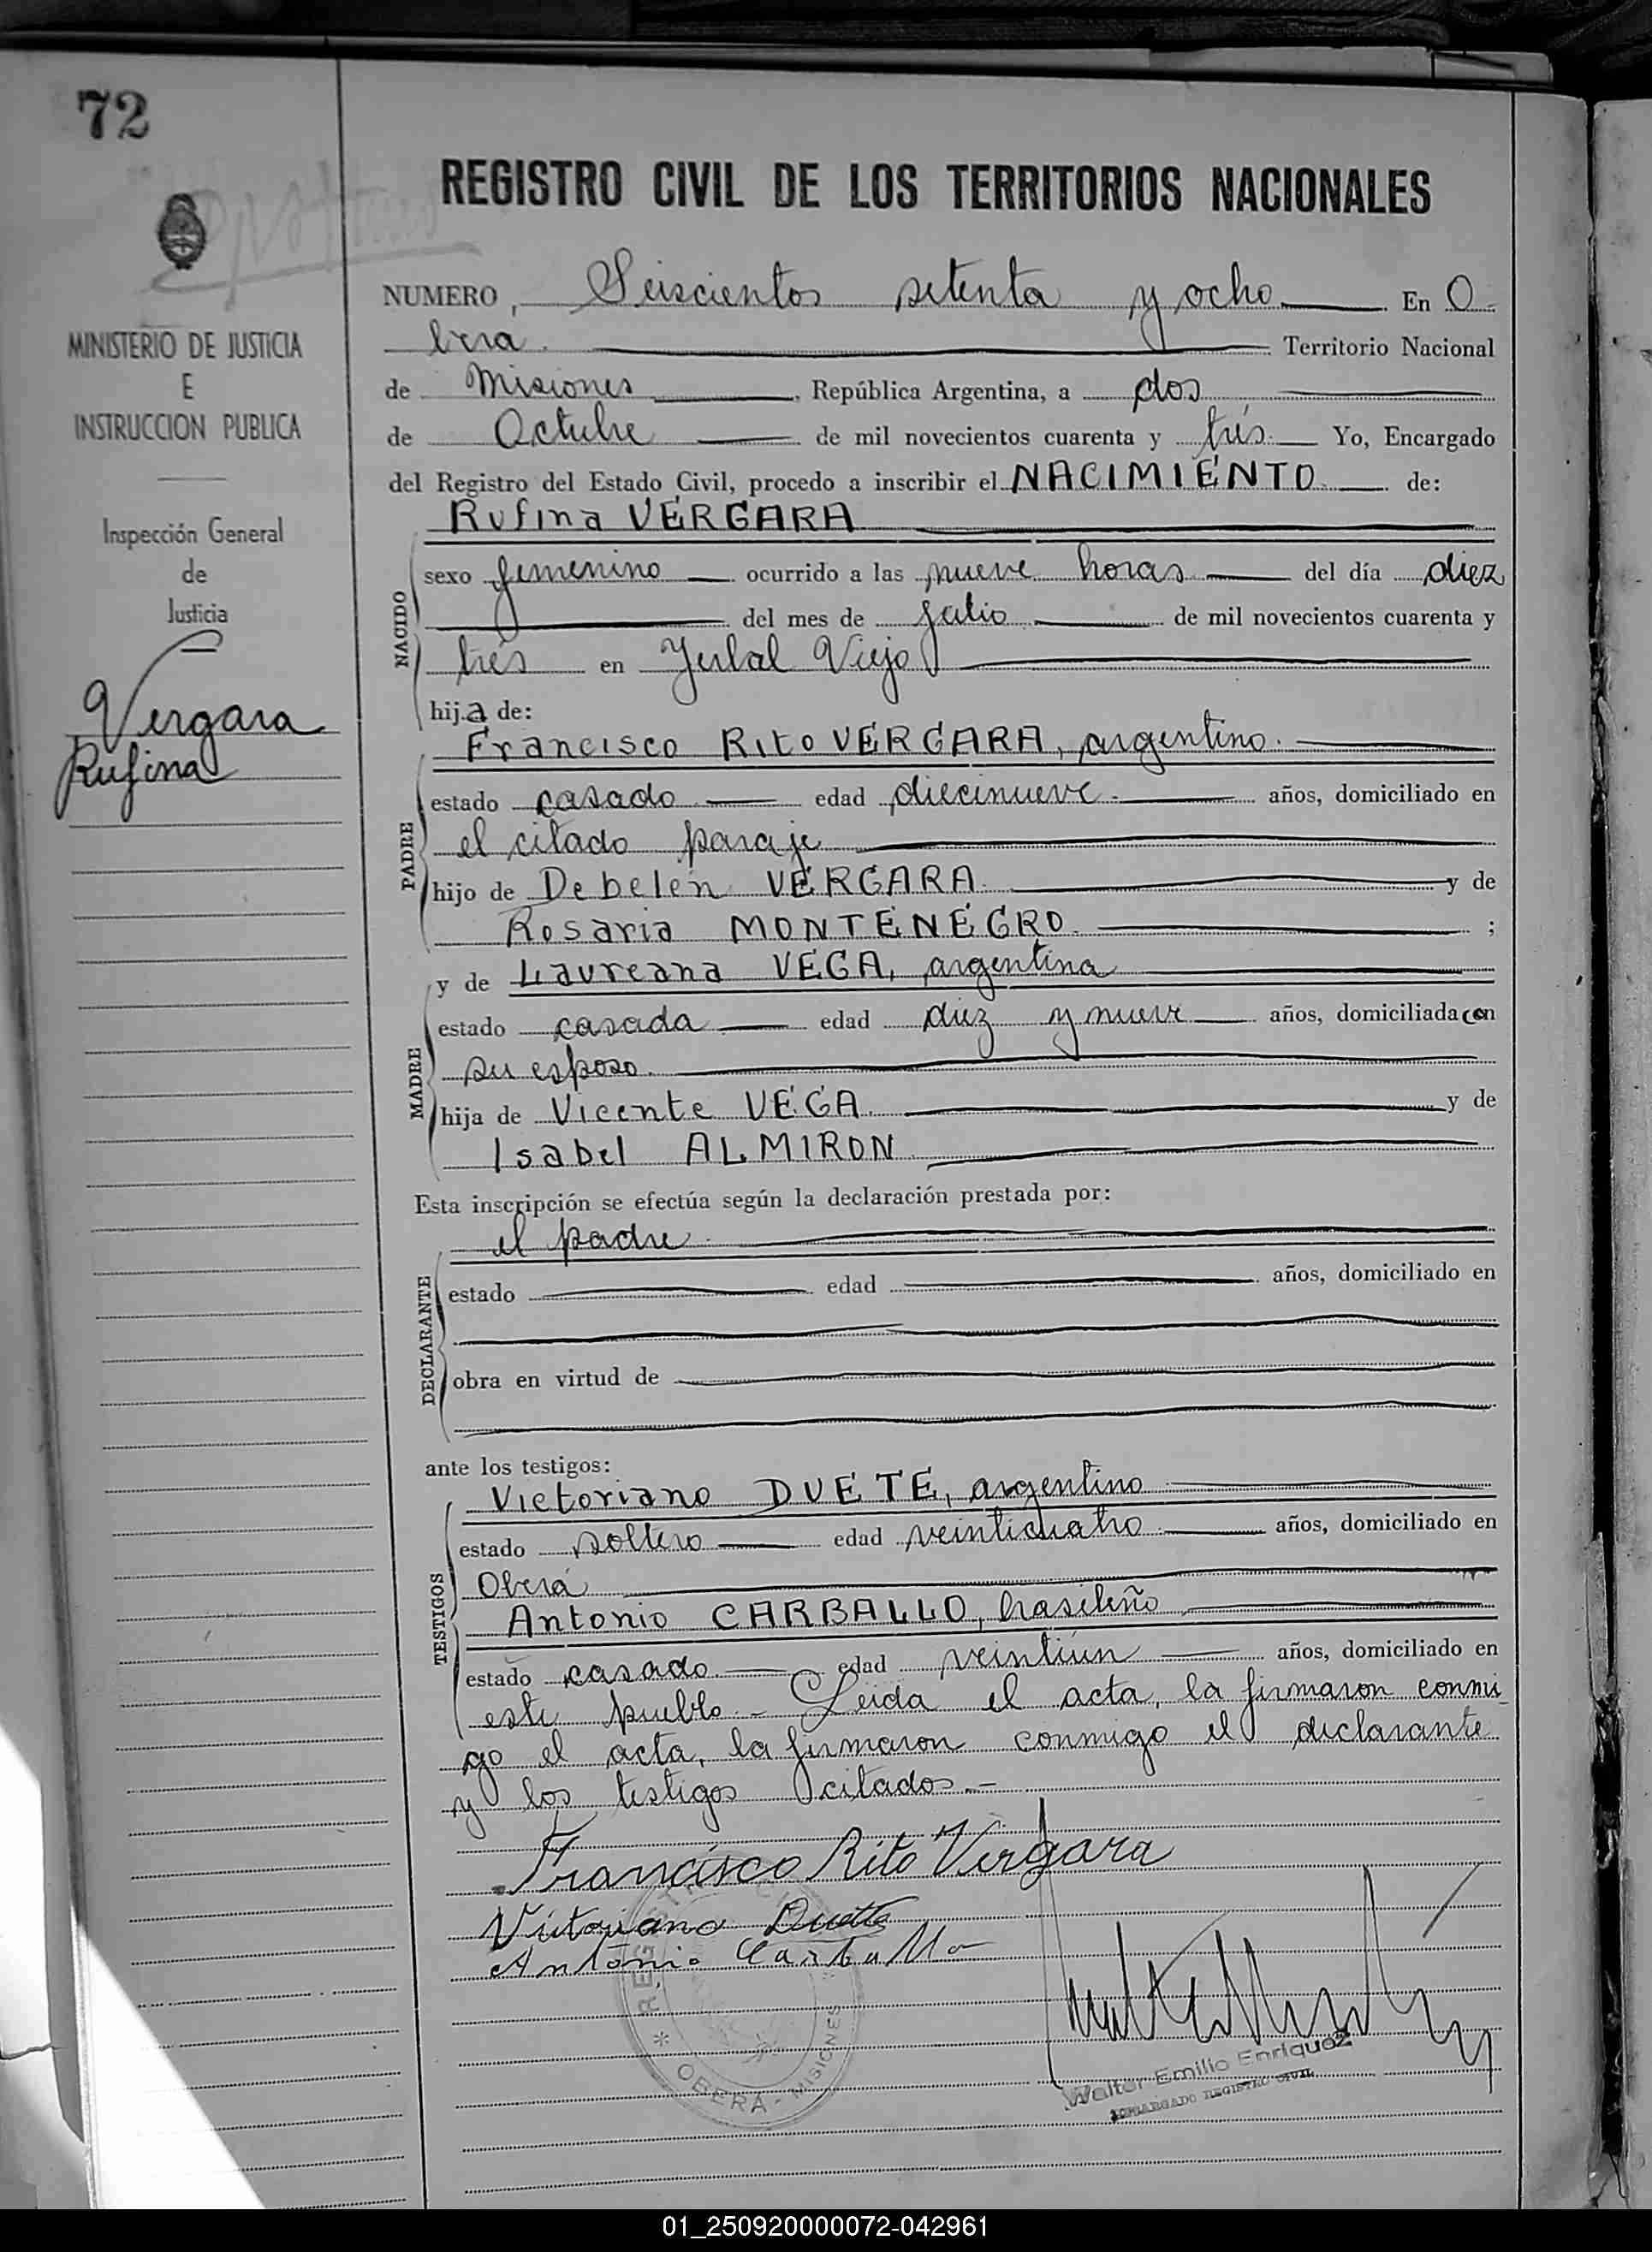 72
REGISTRO CIVIL DE LOS TERRITORIOS NACIONALES
MINISTERIO DE JUSTICIA
E
INSTRUCCION PUBLICA
Inspección General
de
Justicia
Vergara
Rufina
NUMERO, Seiscientos setenta y ocho En O
bera. Territorio Nacional
de Misiones, República Argentina, a dos
de Octubre de mil novecientos cuarenta y trés Yo, Encargado
del Registro del Estado Civil, procedo a inscribir el NACIMIENTO de:
Rufina VERGARA
NACIDO
sexo femenino ocurrido a las nueve horas del día diez
del mes de julio de mil novecientos cuarenta y
trés en Yerbal Viejo
hija de:
PADRE
Francisco Rito VERGARA, argentino.
estado casado edad diecinueve. años, domiciliado en
el citado paraje
hijo de Debelén VERGARA. y de
Rosaria MONTENEGRO. ;
MADRE
y de Laureana VEGA, argentina
estado casada edad diez y nueve años, domiciliada con
su esposo.
hija de Vicente VEGA. y de
Isabel ALMIRON.
Esta inscripción se efectúa según la declaración prestada por:
DECLARANTE
el padre.
estado edad años, domiciliado en
obra en virtud de
ante los testigos:
TESTIGOS
Victoriano DUETE, argentino
estado soltero edad veinticuatro. años, domiciliado en
Oberá
Antonio CARBALLO, brasileño
estado casado. edad veintiún años, domiciliado en
este pueblo.- Leida el acta, la firmaron conmi-
go el acta, la firmaron conmigo el declarante
y los testigos citados.-
Francisco Rito Vergara
Victoriano Duette
Antonio Carballo
OBERA - MISIONES
Walter Emilio Enriquez
ENCARGADO REGISTRO CIVIL
01_250920000072-042961